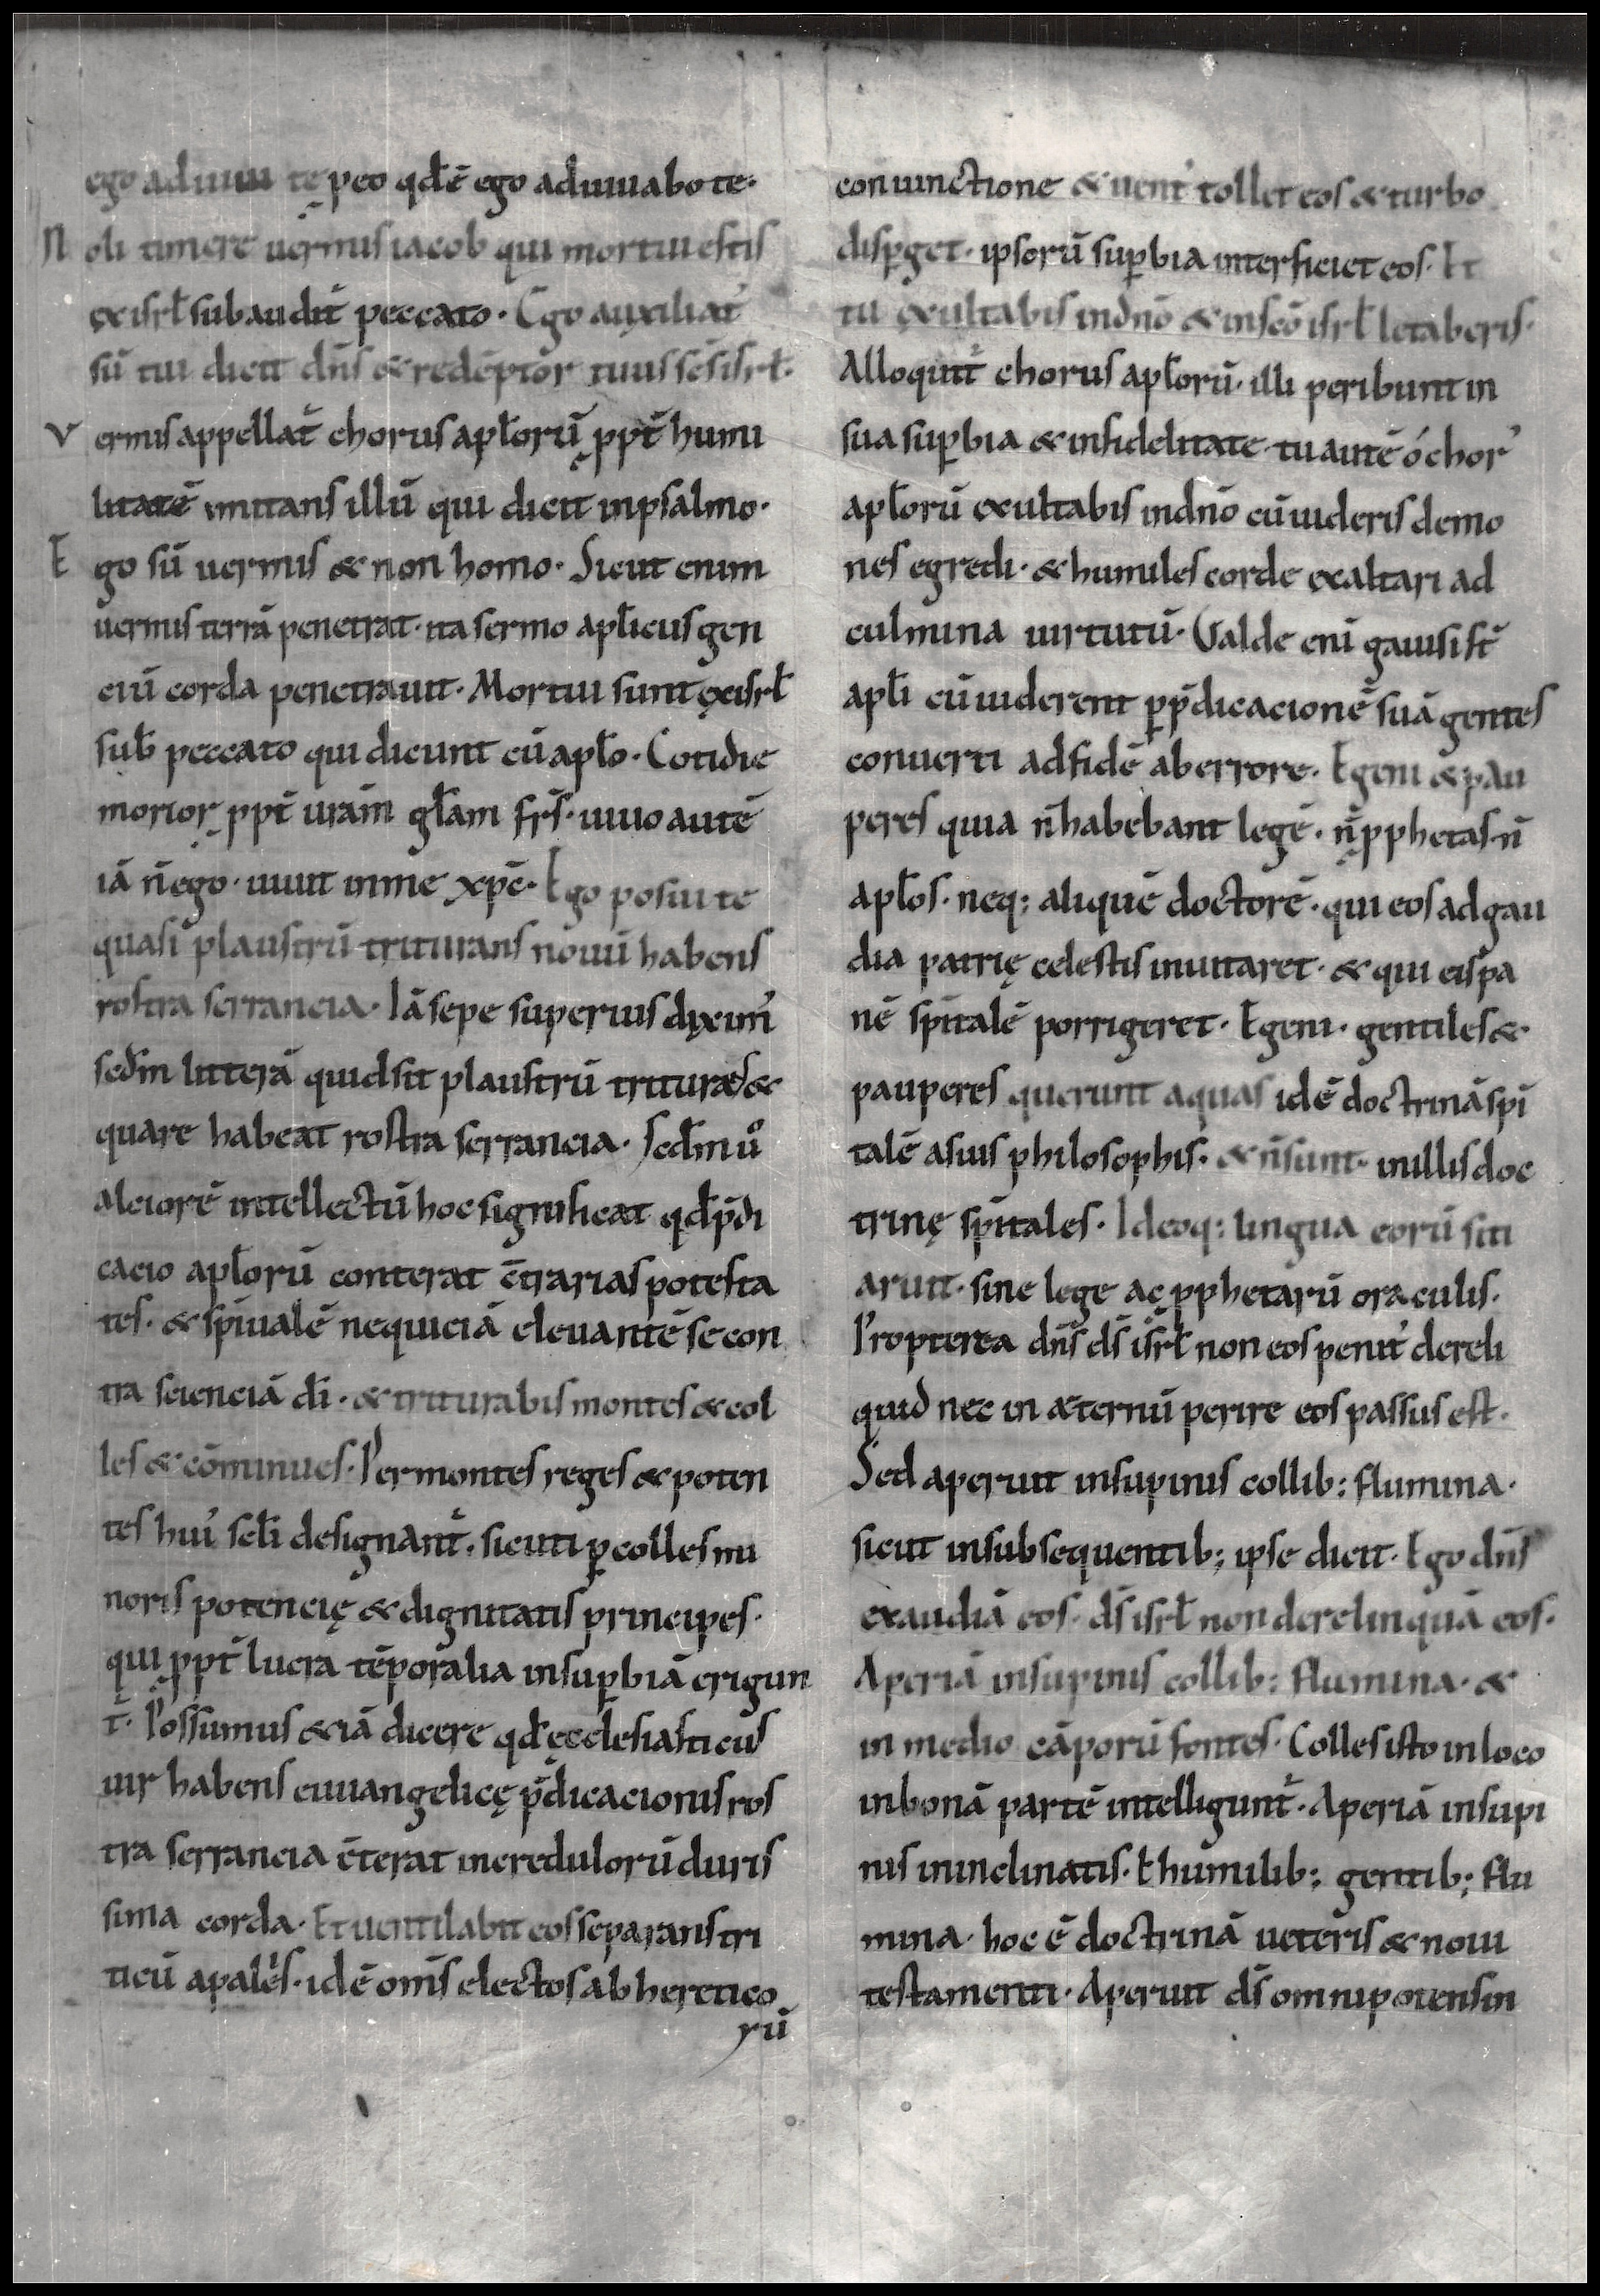 ego adiuui te p̱eo qd̄ē ego adiuuabo te·
Noli timere uermis iacob qui mortui estis
ex isrł subaudit̄ peccato· Ego auxiliat᾽
sū tui dicit dn̄s & redēptor tuus sc̄s isrł·
Vermis appellat̄ chorus apłorū ppt̄ humi
litatē imitans illū qui dicit inpsalmo·
Ego sū uermis & non homo· Sicut enim
uermis terrā penetrat· ita sermo aplicus gen
ciū corda penetrauit· Mortui sunt ex isrł
sub̄ peccato qui dicunt cū apło· Cotidie
morior ppt̄ uram̄ głam frs̄· uiuo autē
iā n̄ ego· uiuit inme xpc̄· Ego posui te
quasi plaustrū triturans nouū habens
rostra serrancia· Iā sepe superius dixim᾽
sedm̄ litterā quid sit plaustrū trituræ &
quare habeat rostra serrancia· Sedm̄ uº
alciorē intellectū hoc significat qd̄ p̄di
cacio apłorū conterat c̄trarias potesta
tes· & spiualē nequiciā eleuantē se con
tra scienciā dī· & triturabis montes & col
les & cōminues· Per montes reges & poten
tes hui᾽ scłi designant̄· sicuti p̱ colles mi
noris potencię & dignitatis principes·
qui ppt̄ lucra tēporalia insup̱biā erigun
t̄· Possumus & iā dicere qd̄ ecclesiasticus
uir habens euuangelicę p̄dicacionis ros
tra serrancia c̄terat incredulorū duris
sima corda· Et uentilabit eos separans tri
ticū apaleis· idē oms̄ electos ab heretico
rū
coniunctione & uent᾽ tollet eos & turbo
disp̱get· ipsorū sup̱bia interficiet eos· Et
tu exultabis indnō & inscō isrł letaberis·
Alloquit̄ chorus apłorū· illi peribunt in
sua sup̱bia & infidelitate· tu autē ó chor᾽
apłorū exultabis indnō cū uideris demo
nes egredi· & humiles corde exaltari ad
culmina uirtutū· Valde enī gauisi st̄
apłi cū uiderent p̱ p̄dicacionē suā gentes
conuerti adfidē aberrore· Egeni & pau
peres quia n̄ habebant legē· n̄ pphetas· n̄
apłos· neq; aliquē doctorē· qui eos ad gau
dia patrię celestis inuitaret· & qui eis pa
nē spitalē porrigeret· Egeni· gentiles &·
pauperes querunt aquas idē doctrinā spi
talē asuis philosophis· & n̄ sunt· inillis doc
trinę spitales· Ideoq; lingua eorū siti
aruit· sine lege ac pphetarū oraculis·
Propterea dn̄s ds̄ isrł non eos penit᾽ dereli
quid nec in æternū perire eos passus est·
Sed aperuit insupinis collib; flumina·
sicut insubsequentib; ipse dicit· Ego dn̄s
exaudiā eos· ds̄ isrł non derelinquā eos·
Aperiā insupinis collib; flumina· &
in medio cāporū fontes· Colles isto inloco
inbonā partē intelligunt̄· Aperiā insupi
nis ininclinatis· & humilib; gentib; flu
mina· hoc ē doctrinā ueteris & noui
testamenti· Aperuit ds̄ omnipotens in